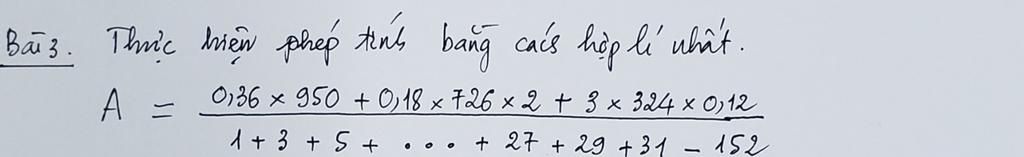 Bài 3. Thực hiện phép tính bằng cách hợp lí nhất.
A = 0,36 × 950 + 0,18 × 726 × 2 + 3 × 324 × 0,12
1 + 3 + 5 + ... + 27 + 29 + 31 - 152